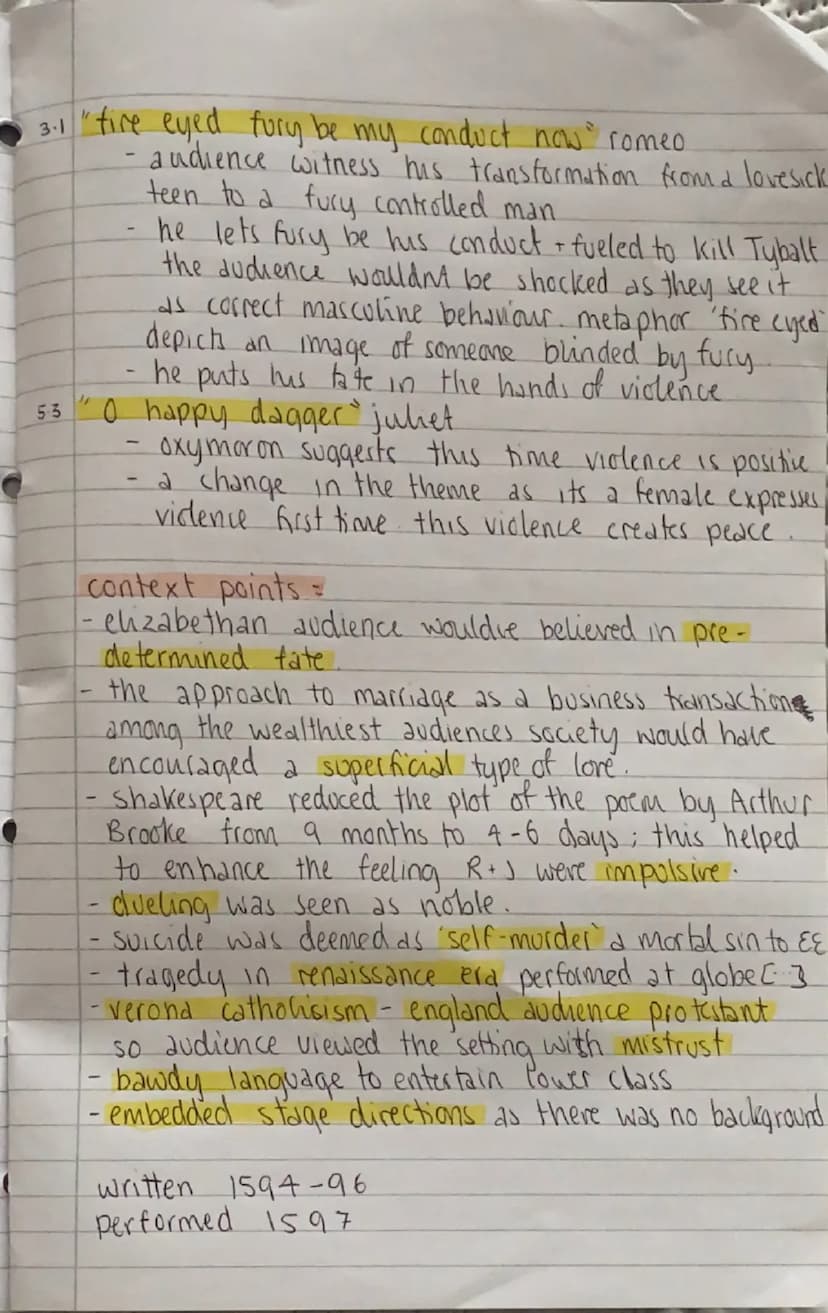 3.1 "fire eyed fury be my conduct now" romeo
- audience witness his transformation from a lovesick
teen to a fury controlled man
- he lets fury be his conduct + fueled to kill Tybalt
the audience wouldnt be shocked as they see it
as correct masculine behaviour. metaphor 'fire eyed'
depicts an image of someone blinded by fury.
- he puts his fate in the hands of violence
5.3 "O happy dagger" juliet
- oxymoron suggests this time violence is positive
- a change in the theme as its a female expresses
violence first time. this violence creates peace.
context points =
- elizabethan audience wouldve believed in pre-
determined fate.
- the approach to marriage as a business transaction
among the wealthiest audiences society would have
encouraged a superficial type of love.
- shakespeare reduced the plot of the poem by Arthur
Brooke from 9 months to 4-6 days; this helped
to enhance the feeling R+J were impulsive.
- dueling was seen as noble.
- suicide was deemed as 'self-murder' a mortal sin to EE
- tragedy in renaissance era performed at globe [ ]
- verona catholisism - england audience protestant
so audience viewed the setting with mistrust
- bawdy language to entertain lower class
- embedded stage directions as there was no background
written 1594-96
performed 1597